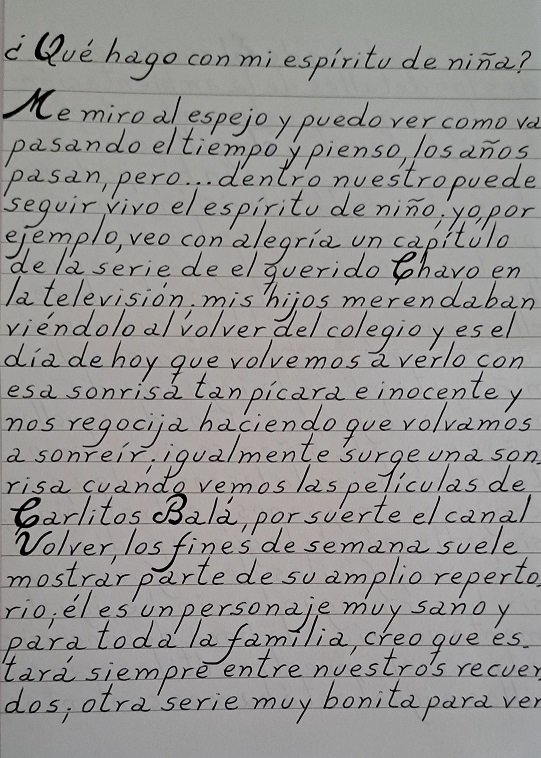 ¿Qué hago con mi espíritu de niña?
Me miro al espejo y puedo ver como va
pasando el tiempo y pienso, los años
pasan, pero... dentro nuestro puede
seguir vivo el espíritu de niño; yo, por
ejemplo, veo con alegría un capítulo
de la serie de el querido Chavo en
la televisión; mis hijos merendaban
viéndolo al volver del colegio y es el
día de hoy que volvemos a verlo con
esa sonrisa tan pícara e inocente y
nos regocija haciendo que volvamos
a sonreír; igualmente surge una son-
risa cuando vemos las películas de
Carlitos Balá, por suerte el canal
Volver, los fines de semana suele
mostrar parte de su amplio reperto-
rio; él es un personaje muy sano y
para toda la familia, creo que es-
tará siempre entre nuestros recuer-
dos; otra serie muy bonita para ver